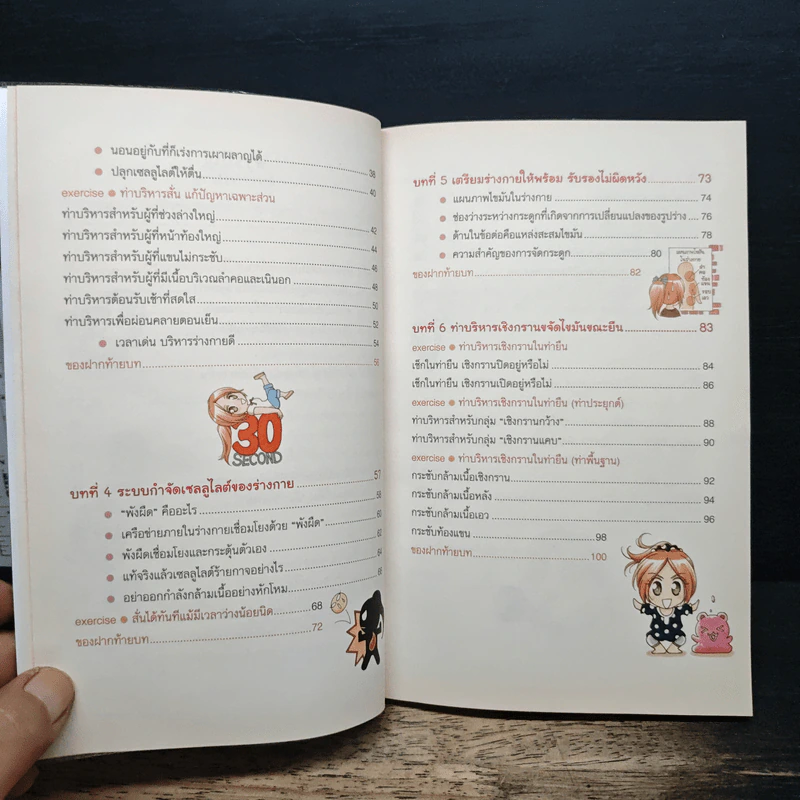 นอนอยู่กับที่ก็เร่งการเผาผลาญได้
ปลุกเซลลูไลต์ให้ตื่น 38
exercise ท่าบริหารสั่น แก้ปัญหาเฉพาะส่วน 40
ท่าบริหารสำหรับผู้ที่ช่วงล่างใหญ่
ท่าบริหารสำหรับผู้ที่หน้าท้องใหญ่ 42
ท่าบริหารสำหรับผู้ที่แขนไม่กระชับ 44
ท่าบริหารสำหรับผู้ที่มีเนื้อบริเวณลำคอและเนินอก 46
ท่าบริหารต้อนรับเช้าที่สดใส 48
ท่าบริหารเพื่อผ่อนคลายตอนเย็น 50
เวลาเด่น บริหารร่างกายดี 52
ของฝากท้ายบท 54
50
30
SECOND
บทที่ 4 ระบบกำจัดเซลลูไลต์ของร่างกาย 57
"พังผืด" คืออะไร 58
เครือข่ายภายในร่างกายเชื่อมโยงด้วย "พังผืด" 60
พังผืดเชื่อมโยงและกระตุ้นตัวเอง 62
แท้จริงแล้วเซลลูไลต์ร้ายกาจอย่างไร 64
อย่าออกกำลังกล้ามเนื้ออย่างหักโหม 66
exercise สั่นได้ทันทีแม้มีเวลาว่างน้อยนิด 68
ของฝากท้ายบท 72
บทที่ 5 เตรียมร่างกายให้พร้อม รับรองไม่ผิดหวัง 73
แผนภาพไขมันในร่างกาย 74
ช่องว่างระหว่างกระดูกที่เกิดจากการเปลี่ยนแปลงของรูปร่าง 76
ด้านในข้อต่อคือแหล่งสะสมไขมัน 78
ความสำคัญของการจัดกระดูก 80
ของฝากท้ายบท 82
บทที่ 6 ท่าบริหารเชิงกรานขจัดไขมันขณะยืน 83
exercise ท่าบริหารเชิงกรานในท่ายืน
เช็กในท่ายืน เชิงกรานปิดอยู่หรือไม่ 84
เช็กในท่ายืน เชิงกรานปิดอยู่หรือไม่ 86
exercise ท่าบริหารเชิงกรานในท่ายืน (ท่าประยุกต์)
ท่าบริหารสำหรับกลุ่ม "เชิงกรานกว้าง" 88
ท่าบริหารสำหรับกลุ่ม "เชิงกรานแคบ" 90
exercise ท่าบริหารเชิงกรานในท่ายืน (ท่าพื้นฐาน)
กระชับกล้ามเนื้อเชิงกราน 92
กระชับกล้ามเนื้อหลัง 94
กระชับกล้ามเนื้อเอว 96
กระชับท้องแขน 98
ของฝากท้ายบท 100